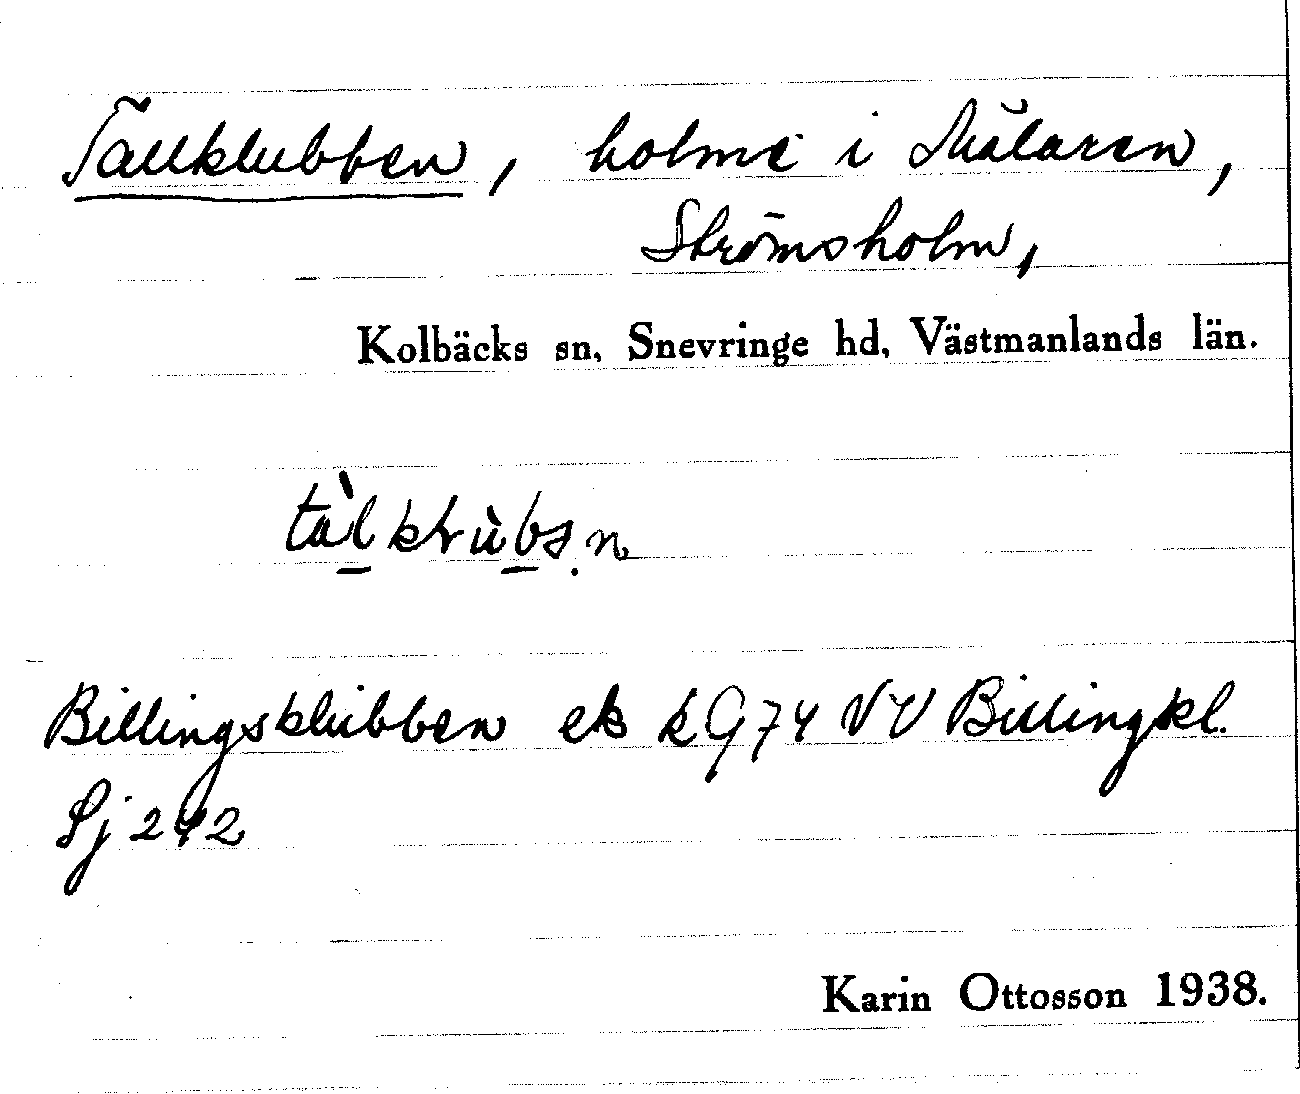 Tallklubben, holme i Mälaren,
Strömsholm,
Kolbäcks sn, Snevringe hd, Västmanlands län.
tàlklùbən
Billingsklubben ek k G74 VV Billingkl.
Sj 242
Karin Ottosson 1938.